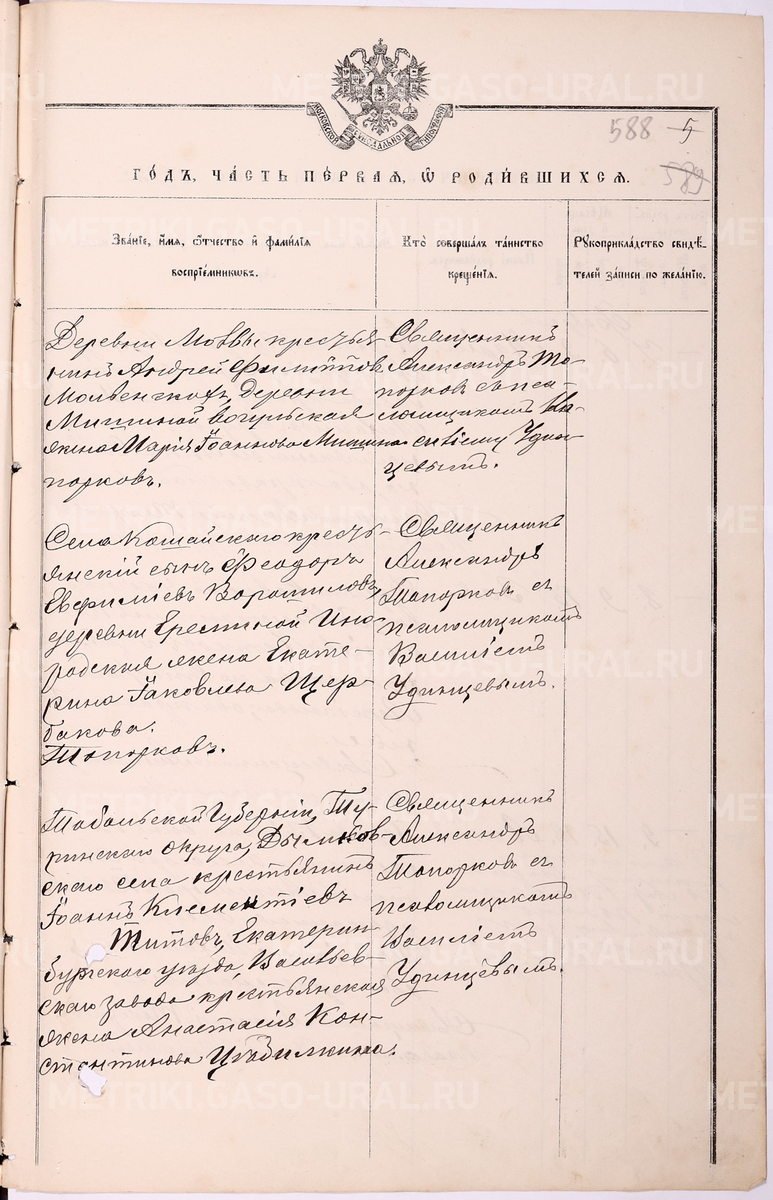 МОСКОВСКОЙ СѴНОДАЛЬНОЙ ТИПОГРАФІИ
588 5
589
ГО́ДЪ, ЧА́СТЬ ПЕ́РВАЯ, Ѿ РОДИ́ВШИХСѦ.
Зва́нїе, и́мѧ, ѻ҆́тчество и҆ фами́лїѧ
воспрїе́мникѡвъ.
Кто̀ соверша́лъ та́инство
креще́нїѧ.
Рꙋкоприкла́дство свидѣ́-
телей за́писи по жела́нїю.
Деревни крестья-
нинъ Андрей
деревни
Мишиной вогульская
жена Марія Іоаннова Мишина
порковъ.
Священникъ
Александръ То-
порковъ съ пса-
ломщикомъ Ва-
силіемъ Удин-
цевымъ.
Села Кошайскаго кресть-
янскій сынъ Феодоръ
Евфиміевъ Ворошиловъ,
деревни Ерестной Ино-
родская жена Екате-
рина Іаковлева Щер-
бакова.
Топорковъ.
Священникъ
Александръ
Топорковъ съ
псаломщикомъ
Василіемъ
Удинцевымъ.
Тобольской Губерніи, Ту-
ринскаго округа, Дымков-
скаго села крестьянинъ
Іоаннъ Клементіевъ
Титовъ, Екатерин-
бургскаго уѣзда,
скаго завода крестьянская
жена Анастасія Кон-
стантинова
Священникъ
Александръ
Топорковъ съ
псаломщикомъ
Василіемъ
Удинцевымъ.
METRIKI.GASO-URAL.RU